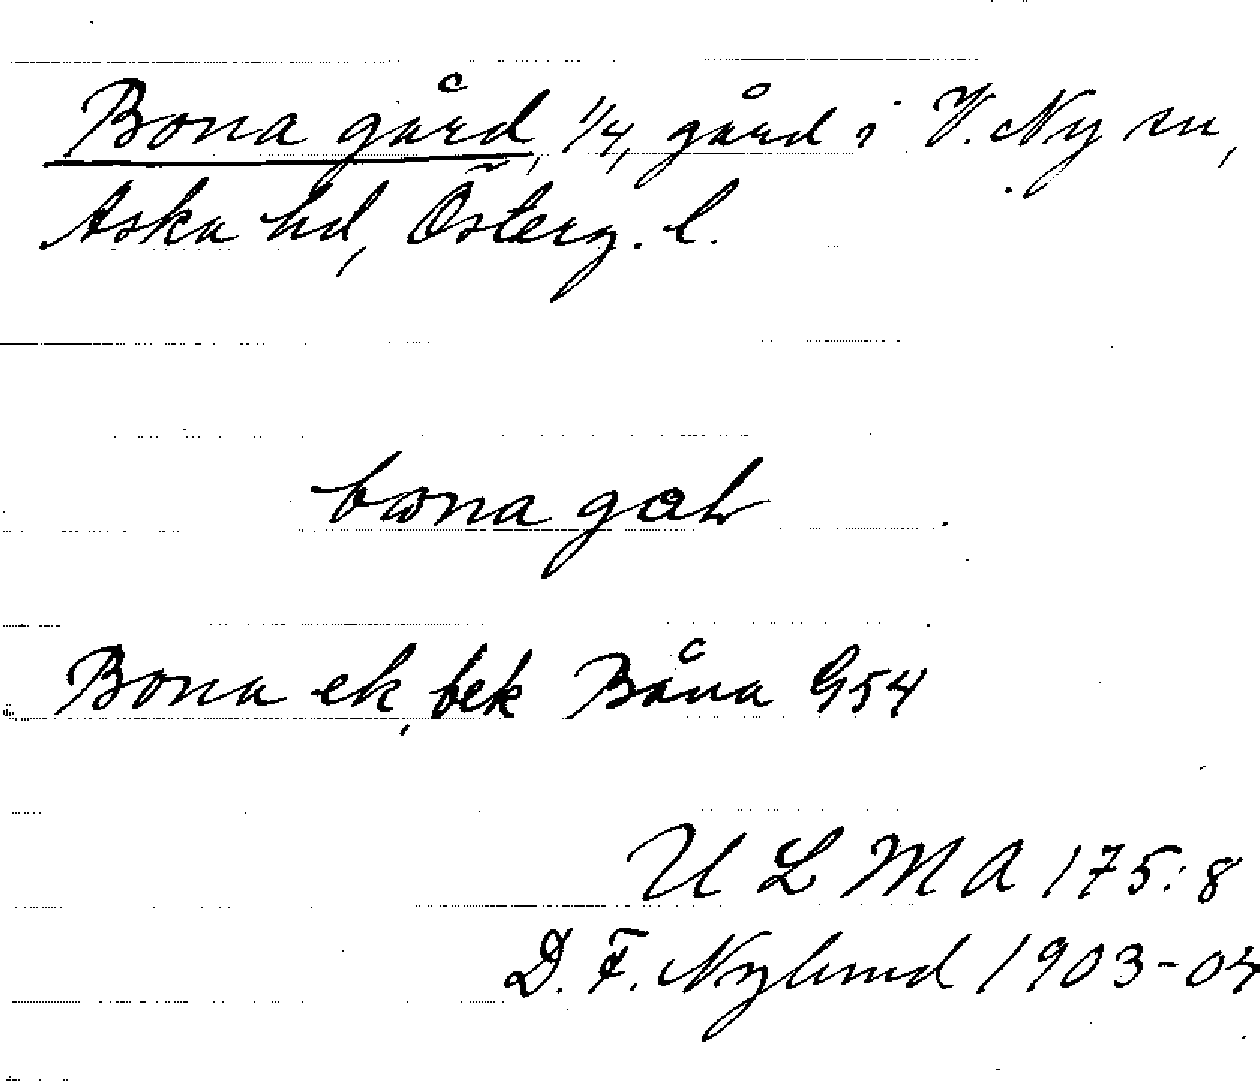 Bona gård, 1/4, gård i V. Ny sn,
Aska hd, Österg. l.
Bona ek, bek Båna G54
U L M A 175:8
D. F. Nylund 1903-04